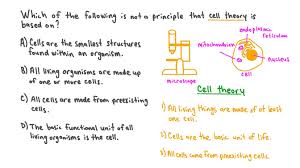 Which of the following is not a principle that cell theory is
based on?
A) Cells are the smallest structures
found within an organism.
B) All living organisms are made up
of one or more cells.
C) All cells are made from preexisting
cells.
D) The basic functional unit of all
living organisms is the cell.
endoplasmic
reticulum
mitochondrion
nucleus
cell
microscope
Cell theory
1) All living things are made of at least
one cell.
2) Cells are the basic unit of life.
3) All cells come from preexisting cells.